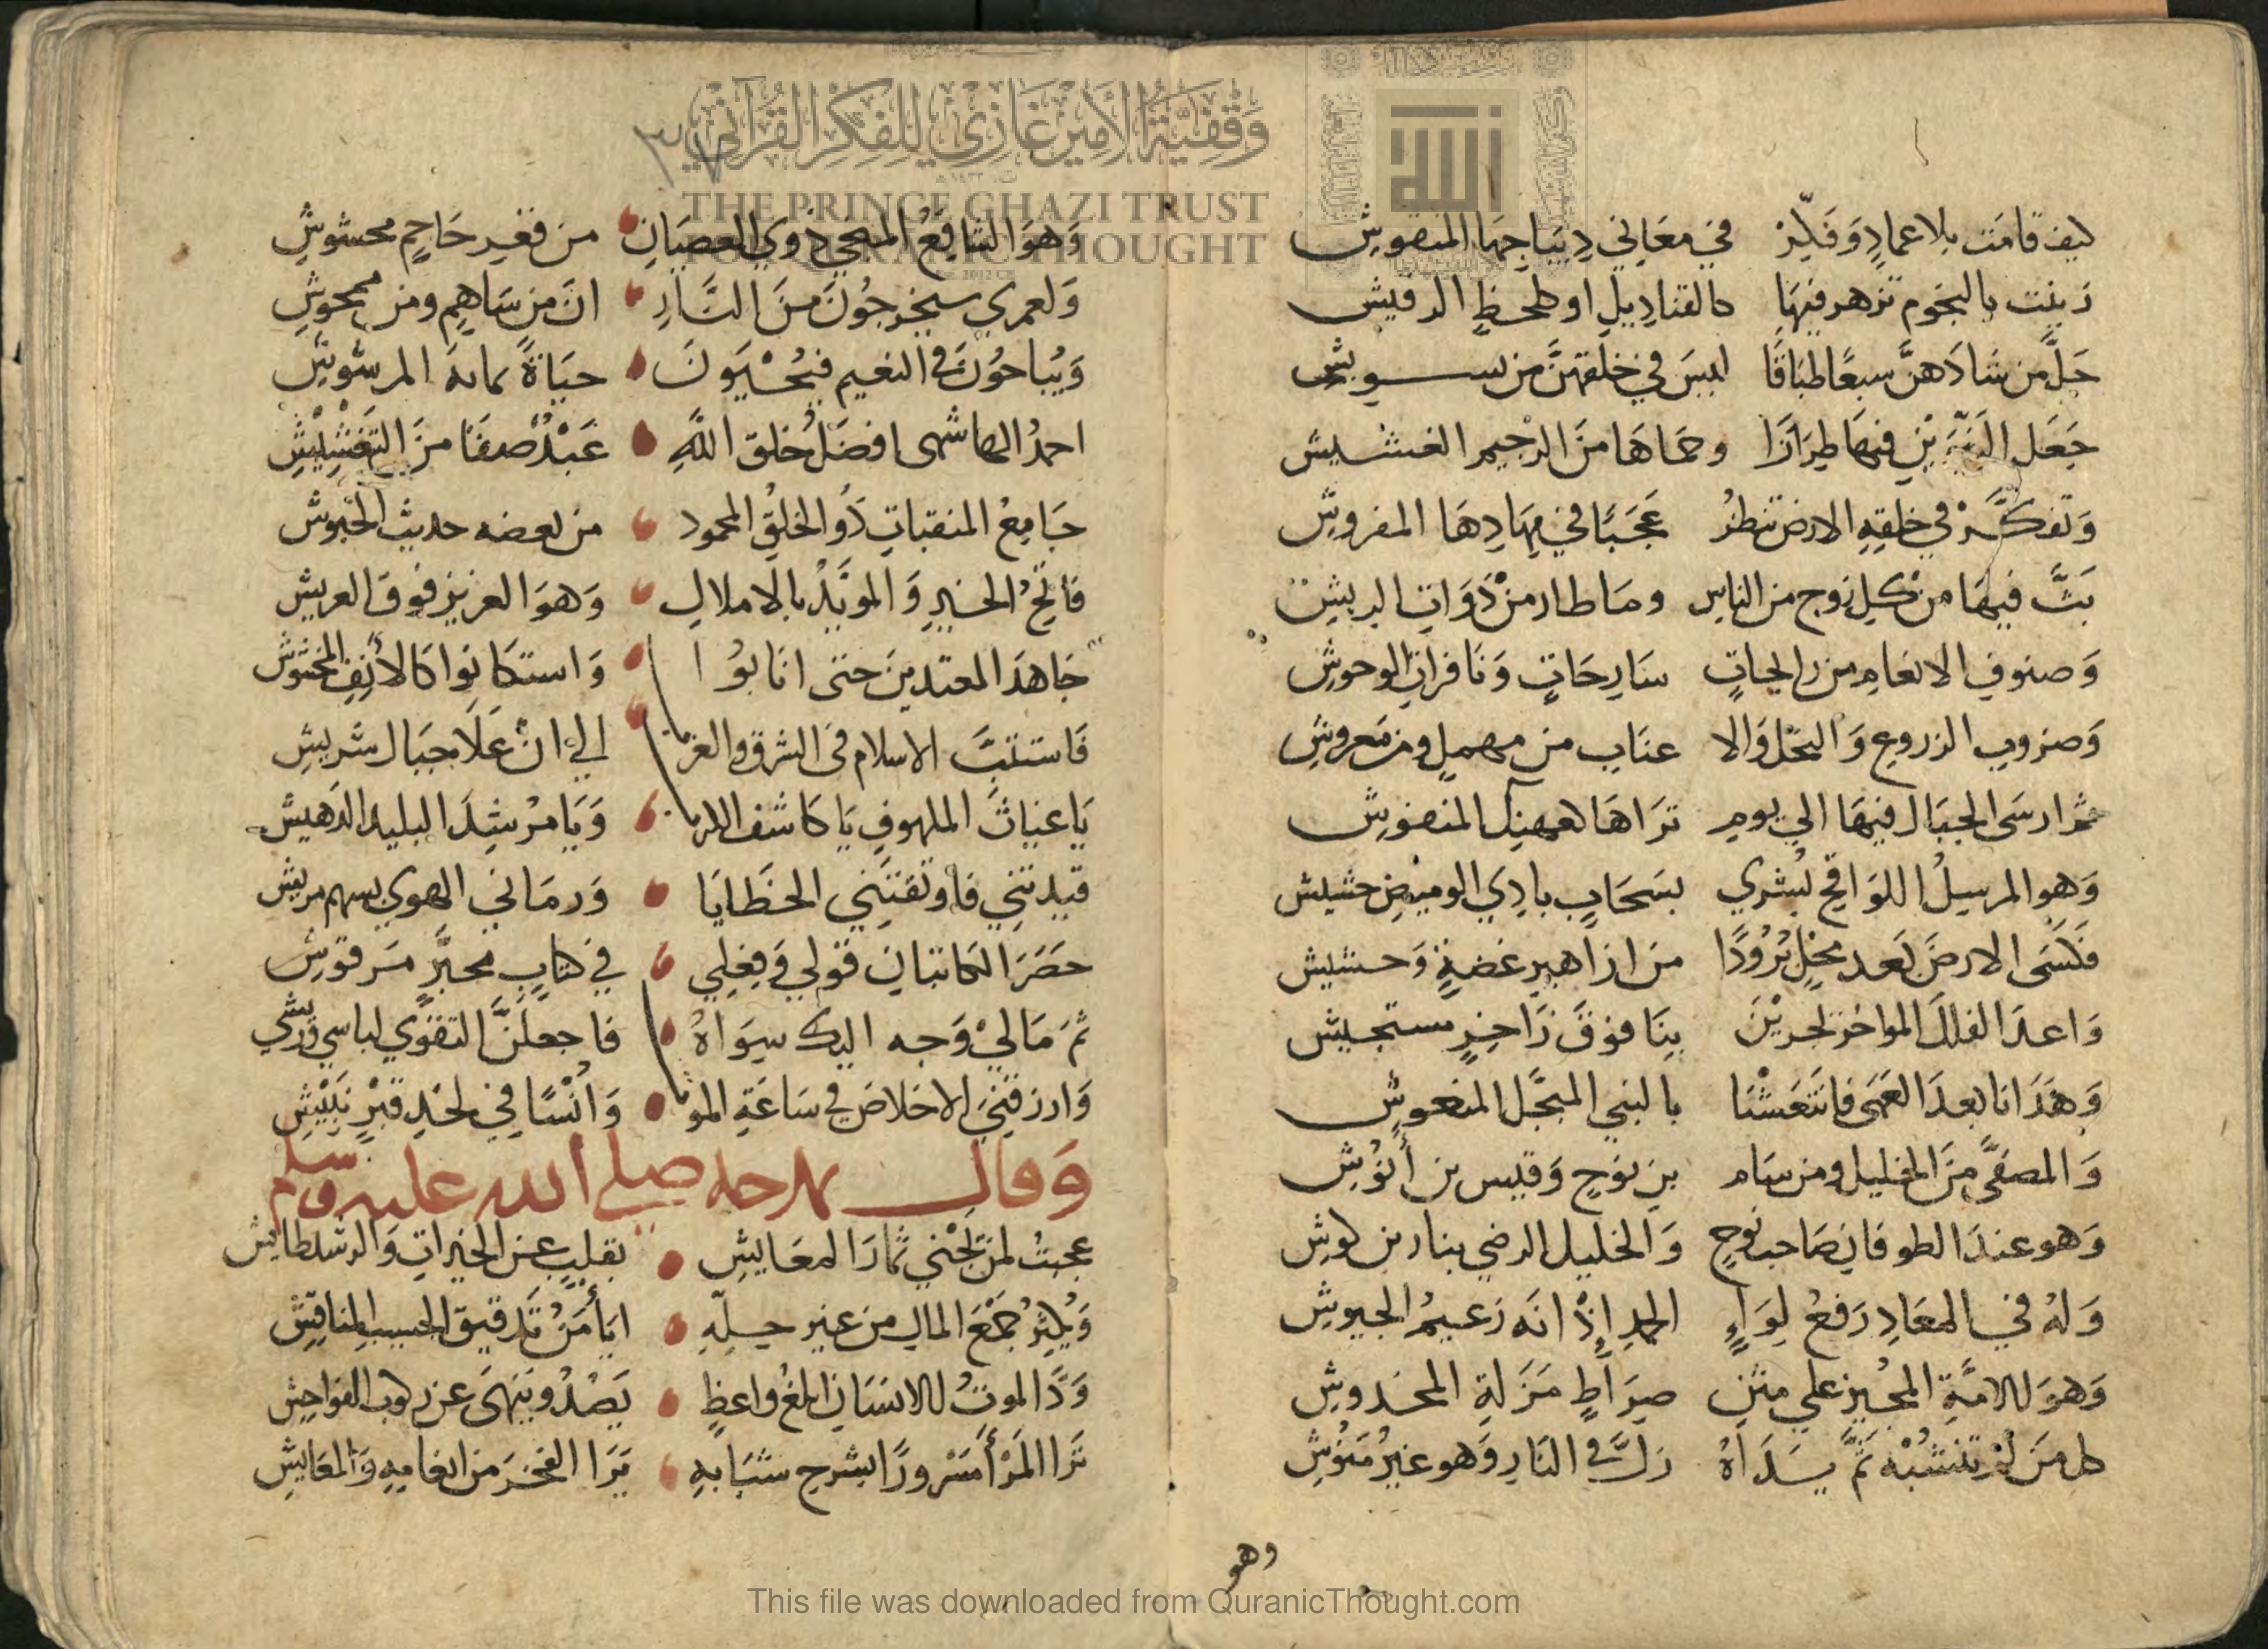 وقفية الأمير غازي للفكر القرآني
THE PRINCE GHAZI TRUST
FOR QURANIC THOUGHT
كيف قامت بلا عماد وفكر في معاني ديباجها المنقوش
زينت بالنجوم تزهر فيها كالقناديل او كلحظ الرقيش
جل من شادهن سبعا طباقا ليس في خلقهن من تسويش
جعل النيرين فيها طرازا وحماها من الرجيم الغشيش
وتفكر في خلقه الارض تنظر عجبا في مهادها المفروش
بث فيها من كل زوج من الناس وما طار من ذوات الريش
وصنوف الانعام من رايحات سارحات ونافرات الوحوش
وضروب الزروع والنخل والا عناب من مهمل ومن معروش
ثم ارسى الجبال فيها الي يوم تراها كعهنك المنفوش
وهو المرسل اللواقح بشري بسحاب بادي الوميض حشيش
فكسى الارض بعد محل برودا من ازاهير غضة وحشيش
واعد الفلك المواخر لجرين بنا فوق زاخر مستجيش
وهدانا بعد العمى فانتعشنا بالنبي المبجل المنعوش
والمصفى من الخليل ومن سام بن نوح وقيس بن أنوش
وهو عند الطوفان صاحب نوح والخليل الرضي بنار بن كوش
وله في المعاد رفع لواء الحمد إذ انه زعيم الجيوش
وهو للامة المجيز علي متن صراط مزلة المخدوش
كل من لم تنشبه ثم يداه زل في النار وهو غير منوش
وهو
٣٧
وهو الشافع المنجي ذوي العصيان من قعر جاحم محشوش
ولعمري سيخرجون من النار ان من ساهم ومن ممحوش
ويباحون في النعيم فيحيون حياة بمائه المرشوش
احمد الهاشمي افضل خلق الله عبد صفا من التغشيش
جامع المنقبات ذو الخلق المحمود من بعضه حديث الحبوش
فاتح الخير والمؤيد بالاملاك وهو العزيز فوق العريش
جاهد المعتدين حتى انابوا واستكانوا كالأنف المخشوش
فاستتب الاسلام في الشرق والغرب الي ان علا جبال شريش
يا غياث الملهوف يا كاشف الكرب ويا مرشد البليد الدهيش
قيدتني فاوثقتني الخطايا ورماني الهوي بسهم مريش
حصر الكاتبان قولي وفعلي في كتاب محبر مرقوش
ثم مالي وجه اليك سواه فاجعلن التقوي لباسي وريشي
وارزقني الاخلاص في ساعة الموت وانسا في لحد قبر نبيش
وقال يمدحه صلى الله عليه وسلم
عجبت لمن تجني ثمار المعايش بقلب عن الخيرات والرشد طايش
ويكثر جمع المال من غير حله ايأمن تدقيق الحسيب المناقش
ود الموت للانسان ابلغ واعظ يصد وينهى عن ركوب الفواحش
ترا المرأ مسرورا بشرخ شبابه يرا الفخر من انعامه والمعايش
This file was downloaded from QuranicThought.com